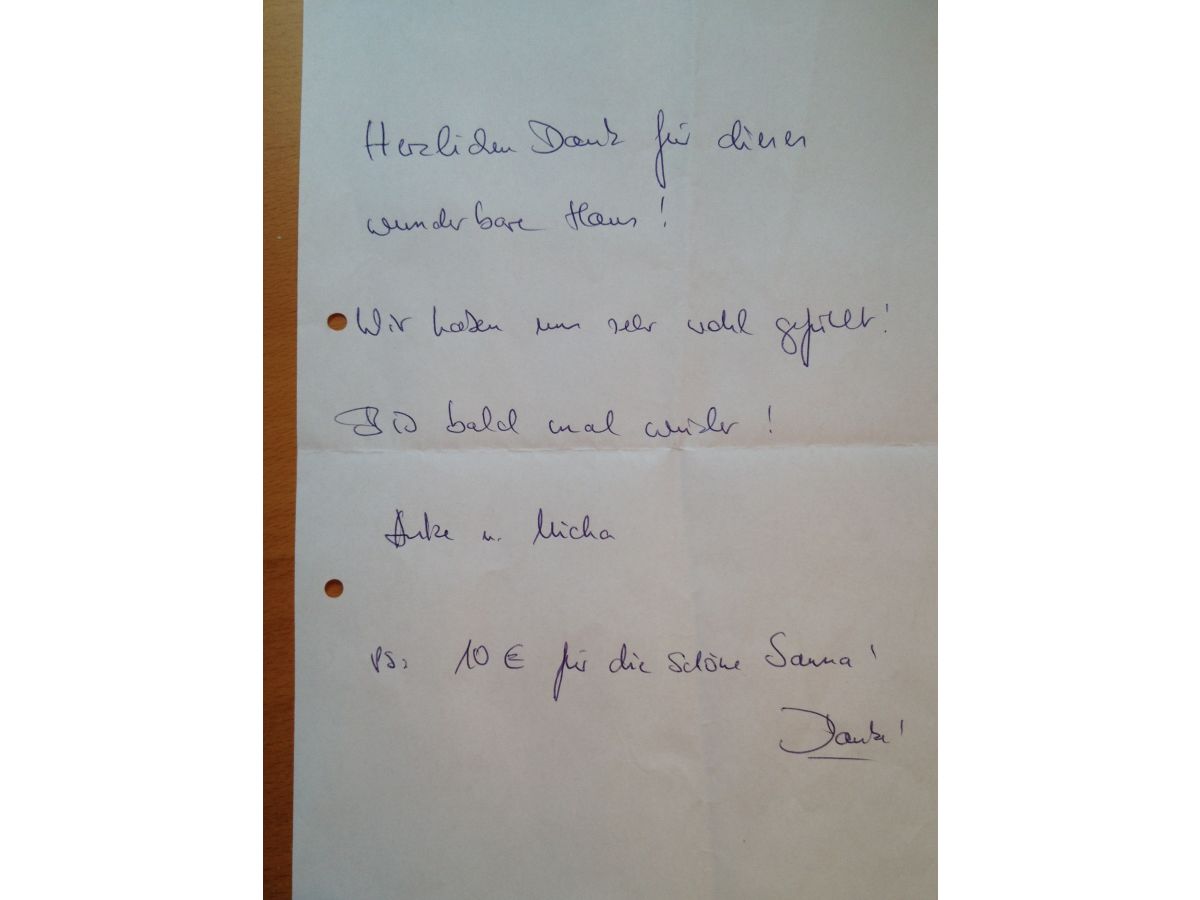 Herzlichen Dank für dieses
wunderbare Haus!
Wir haben uns sehr wohl gefühlt!
Bis bald mal wieder!
Anke u. Micha
PS: 10 € für die schöne Sauna!
Danke!